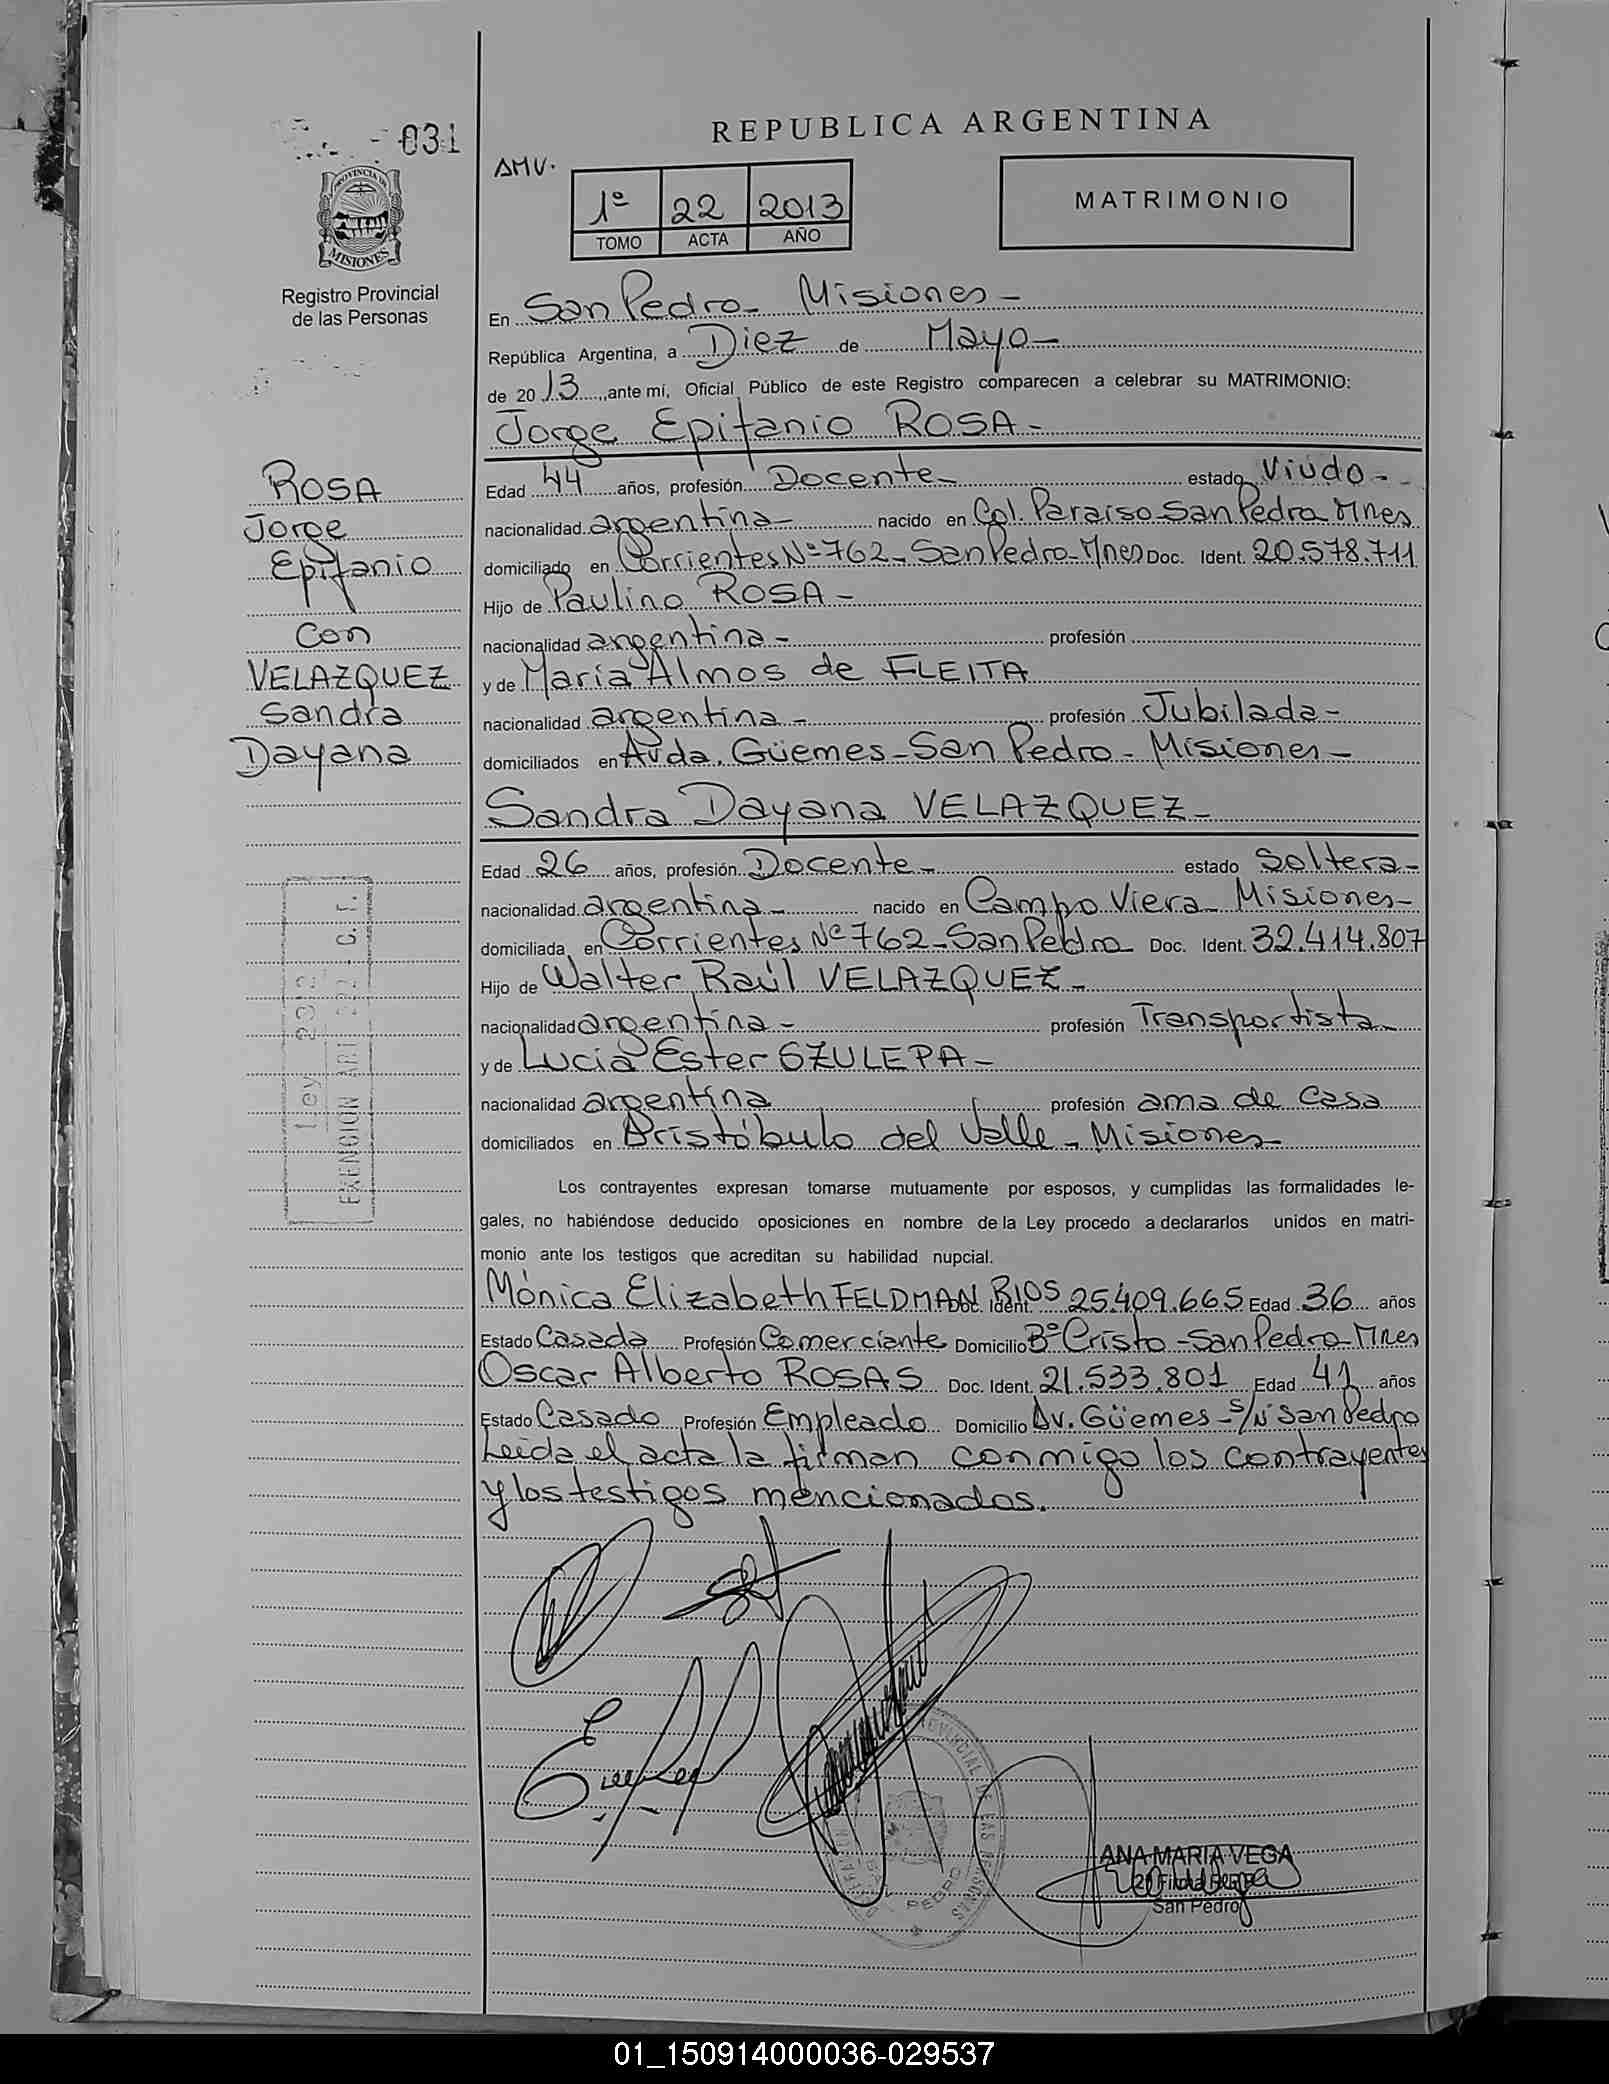 031
REPUBLICA ARGENTINA
AMV.
1º 22 2013
TOMO ACTA AÑO
MATRIMONIO
PROVINCIA DE
MISIONES
Registro Provincial
de las Personas
En San Pedro - Misiones -
República Argentina, a Diez de Mayo -
de 2013, ante mí, Oficial Público de este Registro comparecen a celebrar su MATRIMONIO:
Jorge Epifanio ROSA -
ROSA
Jorge
Epifanio
Con
VELAZQUEZ
Sandra
Dayana
Edad 44 años, profesión Docente - estado Viudo -
nacionalidad argentina - nacido en Col. Paraiso San Pedro Mnes
domiciliado en Corrientes Nº 762 - San Pedro - Mnes Doc. Ident. 20.578.711
Hijo de Paulino ROSA -
nacionalidad argentina - profesión
y de Maria Almos de FLEITA
nacionalidad argentina - profesión Jubilada -
domiciliados en Avda. Güemes - San Pedro - Misiones -
Sandra Dayana VELAZQUEZ -
Edad 26 años, profesión Docente - estado Soltera -
nacionalidad argentina - nacido en Campo Viera - Misiones -
domiciliada en Corrientes Nº 762 - San Pedro Doc. Ident. 32.414.807
Hijo de Walter Raúl VELAZQUEZ -
nacionalidad argentina - profesión Transportista -
y de Lucia Ester SZULEPA -
nacionalidad argentina profesión ama de casa
domiciliados en Aristóbulo del Valle - Misiones -
Ley 2312
EXENCION ART 222 - C.T.
Los contrayentes expresan tomarse mutuamente por esposos, y cumplidas las formalidades le-
gales, no habiéndose deducido oposiciones en nombre de la Ley procedo a declararlos unidos en matri-
monio ante los testigos que acreditan su habilidad nupcial.
Mónica Elizabeth FELDMAN RIOS Doc. Ident. 25.409.665 Edad 36 años
Estado Casada Profesión Comerciante Domicilio Bº Cristo - San Pedro - Mnes
Oscar Alberto ROSAS Doc. Ident. 21.533.801 Edad 41 años
Estado Casado Profesión Empleado Domicilio Av. Güemes - s/Nº San Pedro
Leida el acta la firman conmigo los contrayentes
y los testigos mencionados.
ANA MARIA VEGA
San Pedro
01_150914000036-029537